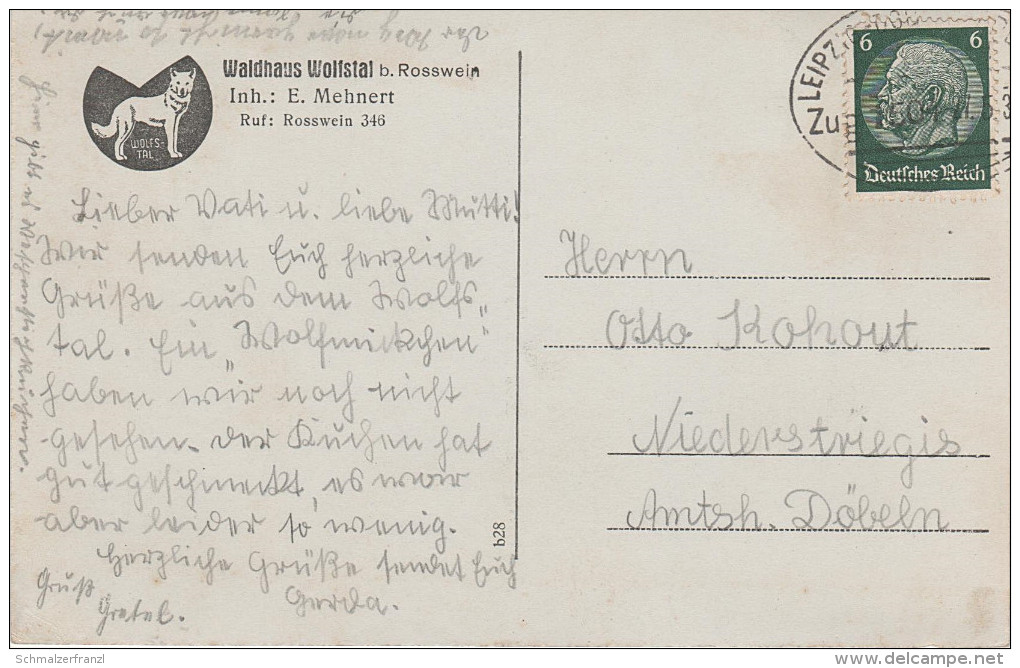 Waldhaus Wolfstal b. Rosswein
Inh.: E. Mehnert
Ruf: Rosswein 346
WOLFS-
TAL
Lieber Vati u. liebe Mutti!
Wir senden Euch herzliche
Grüße aus dem Wolfs„
tal. Ein „Wolfmickchen“
haben wir noch nicht
gesehen. Der Kuchen hat
gut geschmeckt, es war
aber leider so wenig.
Herzliche Grüße sendet Euch
Gerda.
Gruß
Gretel.
Hier gibt es
b28
LEIPZIG
Zug
6 6
Deutsches Reich
Herrn
Otto Kohout
Niederstriegis
Amtsh. Döbeln
Schmalzerfranzl
delcampe.net